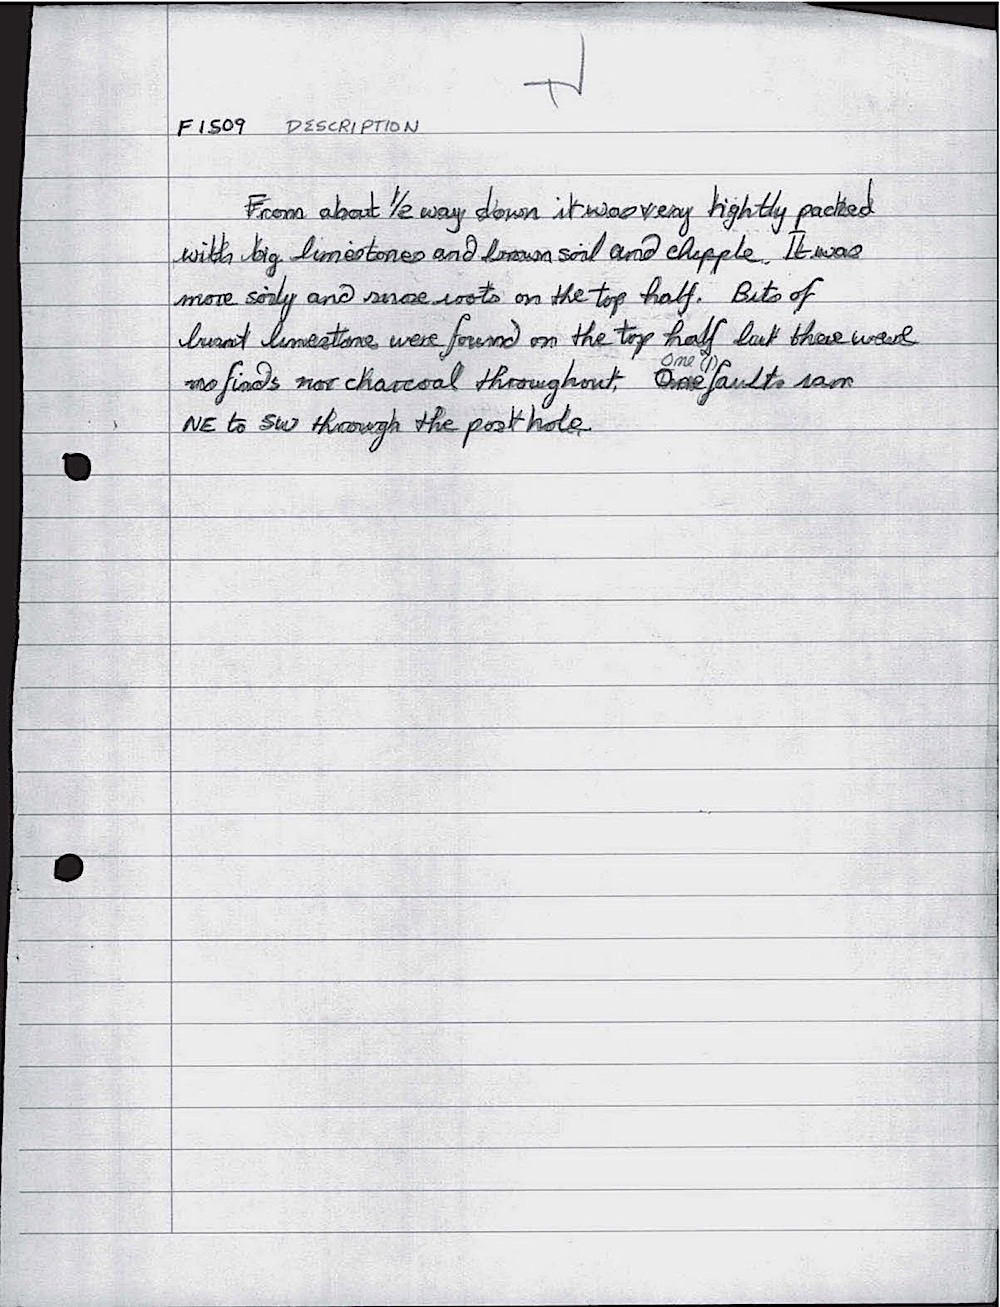 F1509 DESCRIPTION
From about 1/2 way down it was very tightly packed
with big limestones and brown soil and chipple. It was
more soily and more roots on the top half. Bits of
burnt limestone were found on the top half but there were
no finds nor charcoal throughout.
One (1)
One faults ran
NE to SW through the post hole.